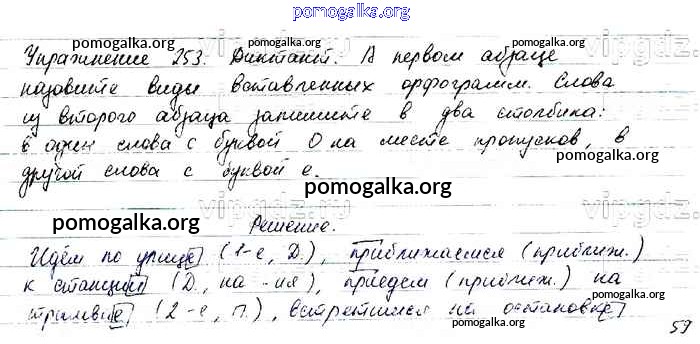 pomogalka.org
Упражнение 253. Диктант. В первом абзаце
pomogalka.org pomogalka.org vipgdz.
назовите виды вставленных орфограмм. Слова
из второго абзаца запишите в два столбика:
в один слова с буквой О на месте пропусков, в
другой слова с буквой е.
pomogalka.org vipgdz.
pomogalka.org
pomogalka.org vipgdz.ru
Решение.
Идём по улице (1-е, Д.), приближаемся (приближ.)
pomogalka.org
к станции (Д., на -ия), приедем (приближ.) на
трамвае (2-е, П.), встретимся на остановке
pomogalka.org pomogalka.org
59